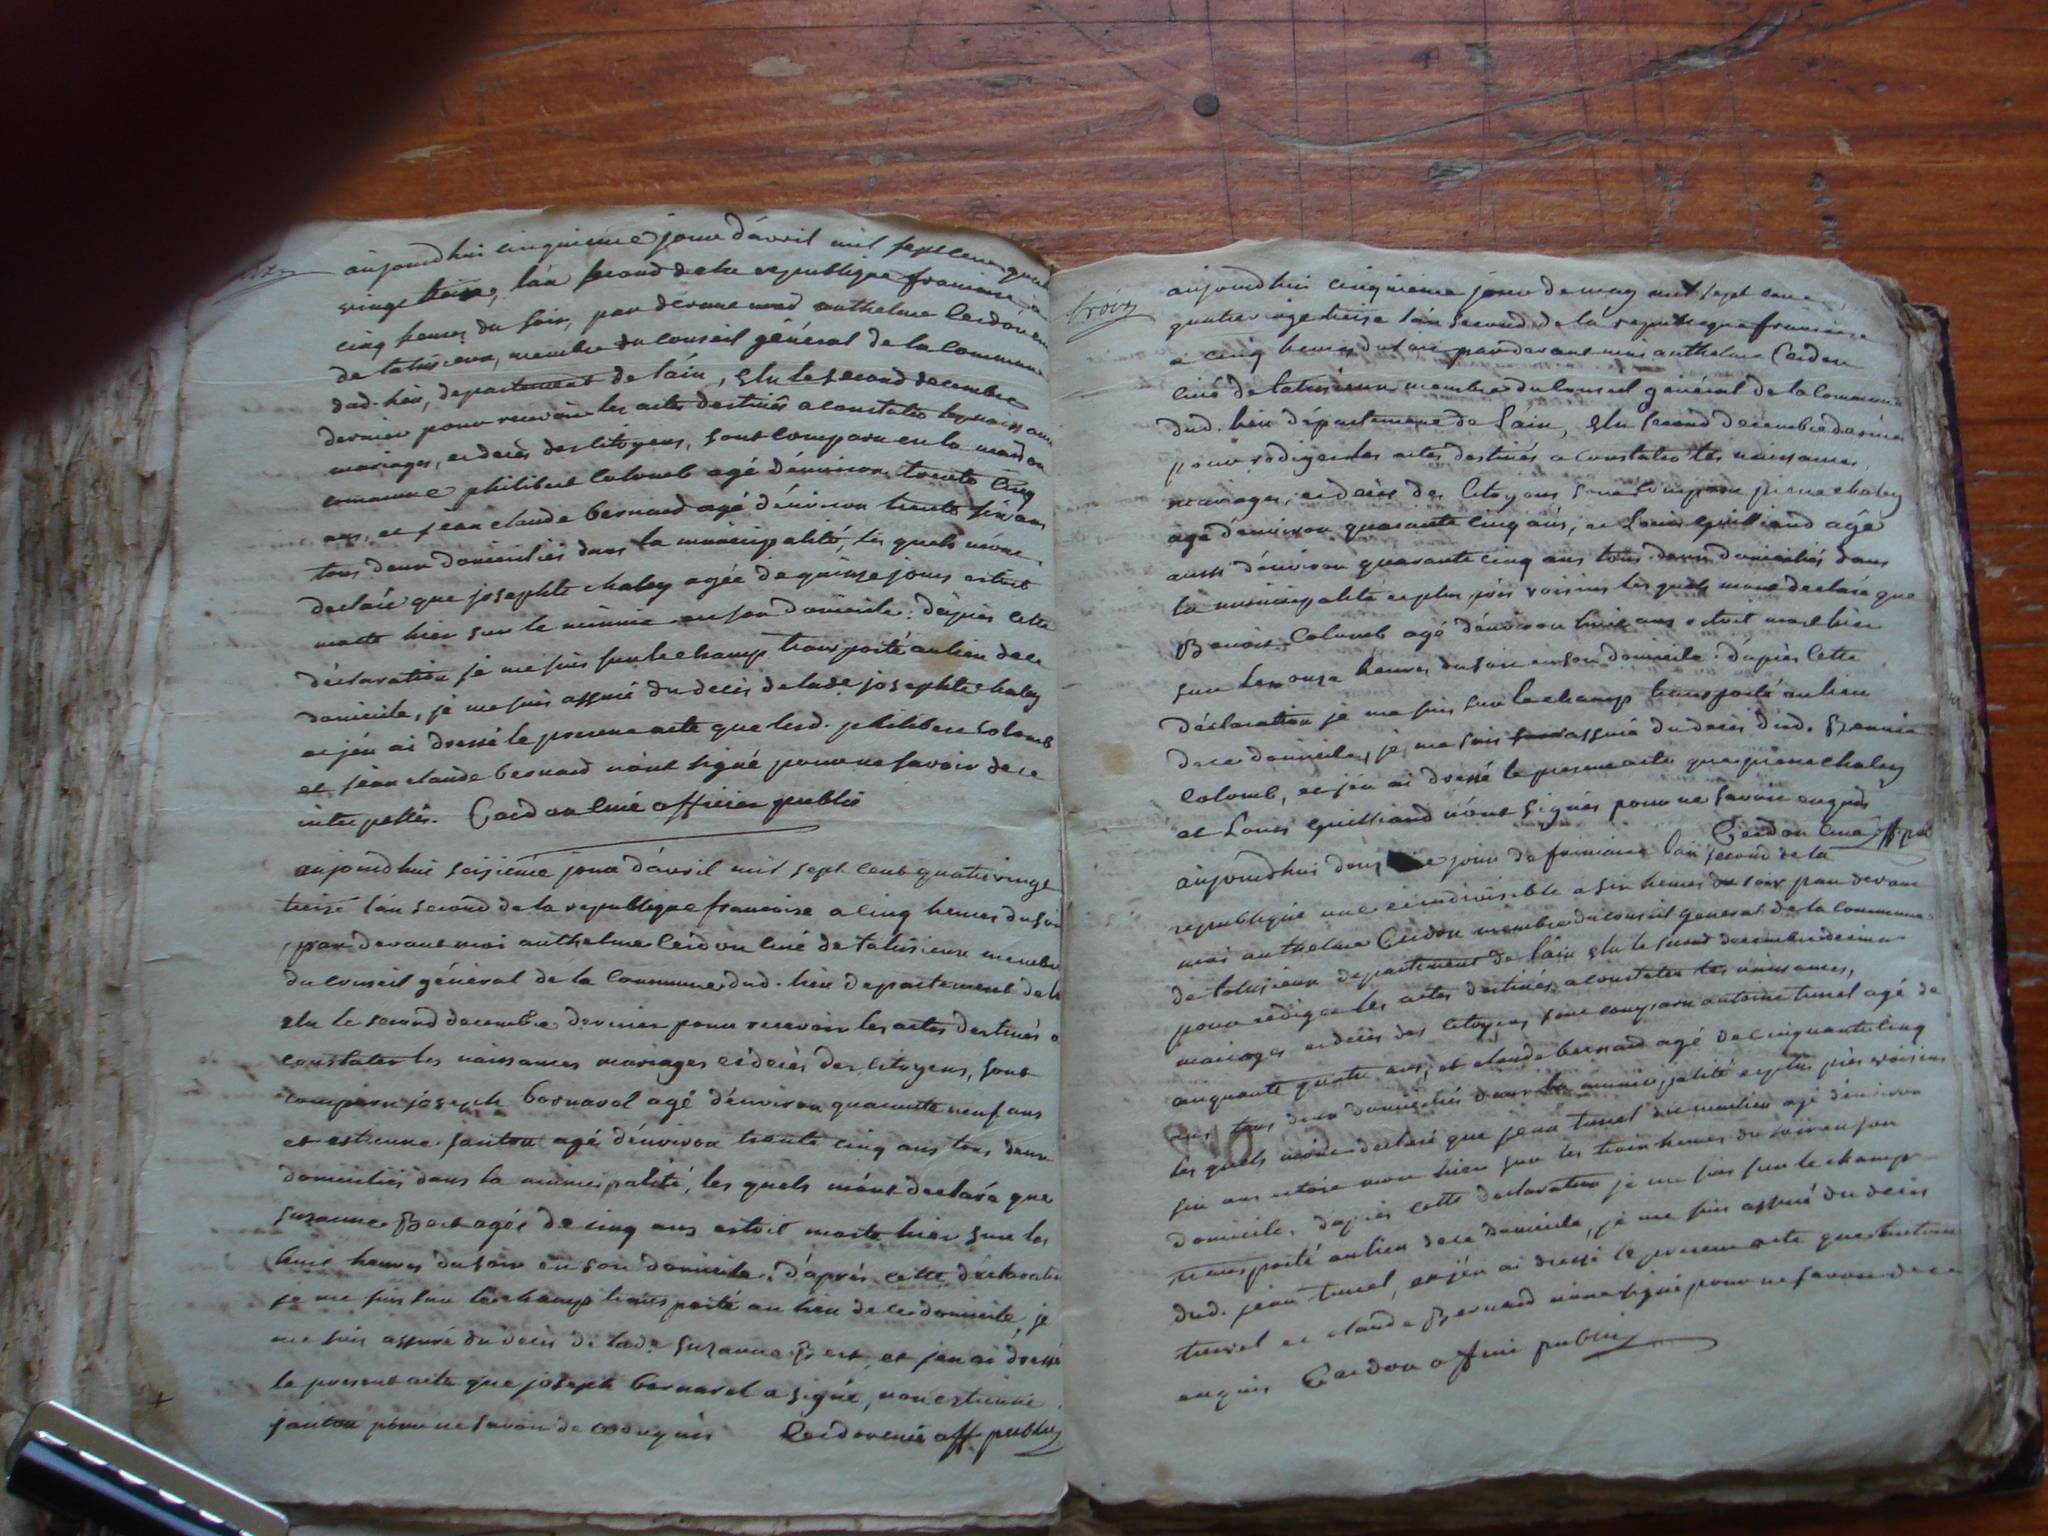 aujourdhui cinquieme jour d'avril mil sept cent quatre
vingt treize, l'an second de la republique francoise a
cinq heures du soir, par devant moi anthelme Cerdon curé
de talissieu, membre du conseil général de la commune
dud. lieu, departement de l'ain, élu le second decembre
dernier pour recevoir les actes destinés a constater les naissances
mariages, et decès des citoyens, sont comparu en la maison
commune philibert Colomb agé d'environ trente cinq
ans, et jean claude bernard agé d'environ trente six ans
tous deux domiciliés dans la municipalité, les quels m'ont
declaré que josephte chaley agée de quinze jours estoit
morte hier sur le en son domicile. d'après cette
déclaration je me suis sur le champ transporté au lieu de ce
domicile, je me suis assuré du decès de lade josephte chaley
et j'en ai dressé le present acte que lesd. philibert Colomb
et jean claude bernard n'ont signé pour ne savoir de ce
interpellés. Cerdon curé officier public
aujourdhui seisiéme jour d'avril mil sept cent quatre vingt
treize l'an second de la republique francoise a cinq heures du soir
par devant moi anthelme Cerdon curé de talissieu membre
du conseil général de la Commune dud. lieu departement de l'ain
élu le second decembre dernier pour recevoir les actes destinés a
constater les naissances mariages et decès des citoyens, sont
comparu joseph bernard agé d'environ quarante neuf ans
et estienne janton agé d'environ trente cinq ans tous deux
domiciliés dans la municipalité, les quels m'ont declaré que
suzanne Bert agée de cinq ans estoit morte hier sur les
huit heures du soir en son domicile. d'après cette déclaration
je me suis sur le champ transporté au lieu de ce domicile, je
me suis assuré du decès de lade suzanne Bert, et j'en ai dressé
le present acte que joseph bernard a signé, non estienne
janton pour ne savoir de ce enquis Cerdon curé off public
trois
aujourdhui cinquieme jour de may mil sept cent
quatre vingt treize l'an second de la republique francoise
a cinq heures du soir par devant moi anthelme Cerdon
curé de talissieu membre du Conseil général de la Commune
dud. lieu département de l'ain, élu second decembre dernier
pour rediger les actes destinés a constater les naissances,
mariages, et decès des Citoyens sont comparu pierre chaley
agé d'environ quarante cinq ans, et Louis guilliand agé
aussi d'environ quarante cinq ans tous deux domiciliés dans
la municipalité et plus près voisins les quels m'ont declaré que
Benoit Colomb agé d'environ huit ans estoit mort hier
sur les onze heures du soir en son domicile. d'après cette
déclaration je me suis sur le champ transporté au lieu
de ce domicile, je me suis assuré du decès dud. Benoit
Colomb, et j'en ai dressé le present acte que pierre chaley
et Louis guilliand n'ont signés pour ne savoir enquis
Cerdon curé off. pub
aujourdhui jour de frimaire l'an second de la
republique une et indivisible a six heures du soir par devant
moi anthelme Cerdon membre du conseil general de la Commune
de talissieu departement de l'ain élu le second decembre dernier
pour rediger les actes destinés a constater les naissances,
mariages et decès des citoyens sont comparu antoine turrel agé de
cinquante quatre ans, et claude bernard agé de cinquante cinq
ans tous deux domiciliés dans la municipalité et plus près voisins
les quels m'ont declaré que jean turrel agé d'environ
six ans estoit mort hier sur les trois heures du soir en son
domicile, d'après cette declaration je me suis sur le champ
transporté au lieu de ce domicile, je me suis assuré du decès
dud. jean turrel, et j'en ai dressé le present acte que
turrel et claude Bernard n'ont signé pour ne savoir de ce
enquis Cerdon public